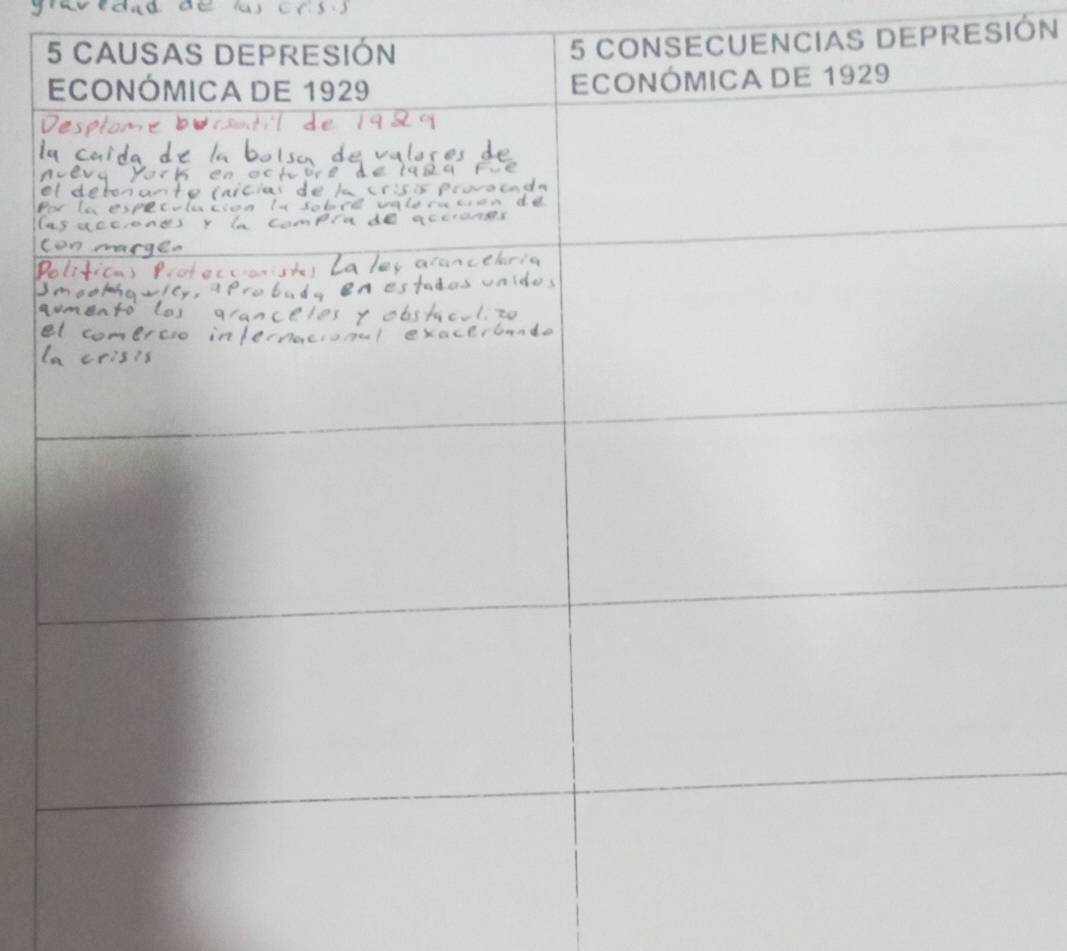 gravedad de las crisis
5 CAUSAS DEPRESIÓN
ECONÓMICA DE 1929
5 CONSECUENCIAS DEPRESIÓN
ECONÓMICA DE 1929
Desplome bursatil de 1929
la caida de la bolsa de valores de
nueva york en octubre de 1929 Fue
el detonante inicial de la crisis provocada
por la especulacion la sobre valoracion de
las acciones y la compra de acciones
con margen
Politicas Proteccionistas La ley arancelaria
Smoot, aprobada en estados unidos
aumento los aranceles y obstaculizo
el comercio internacional exacerbando
la crisis